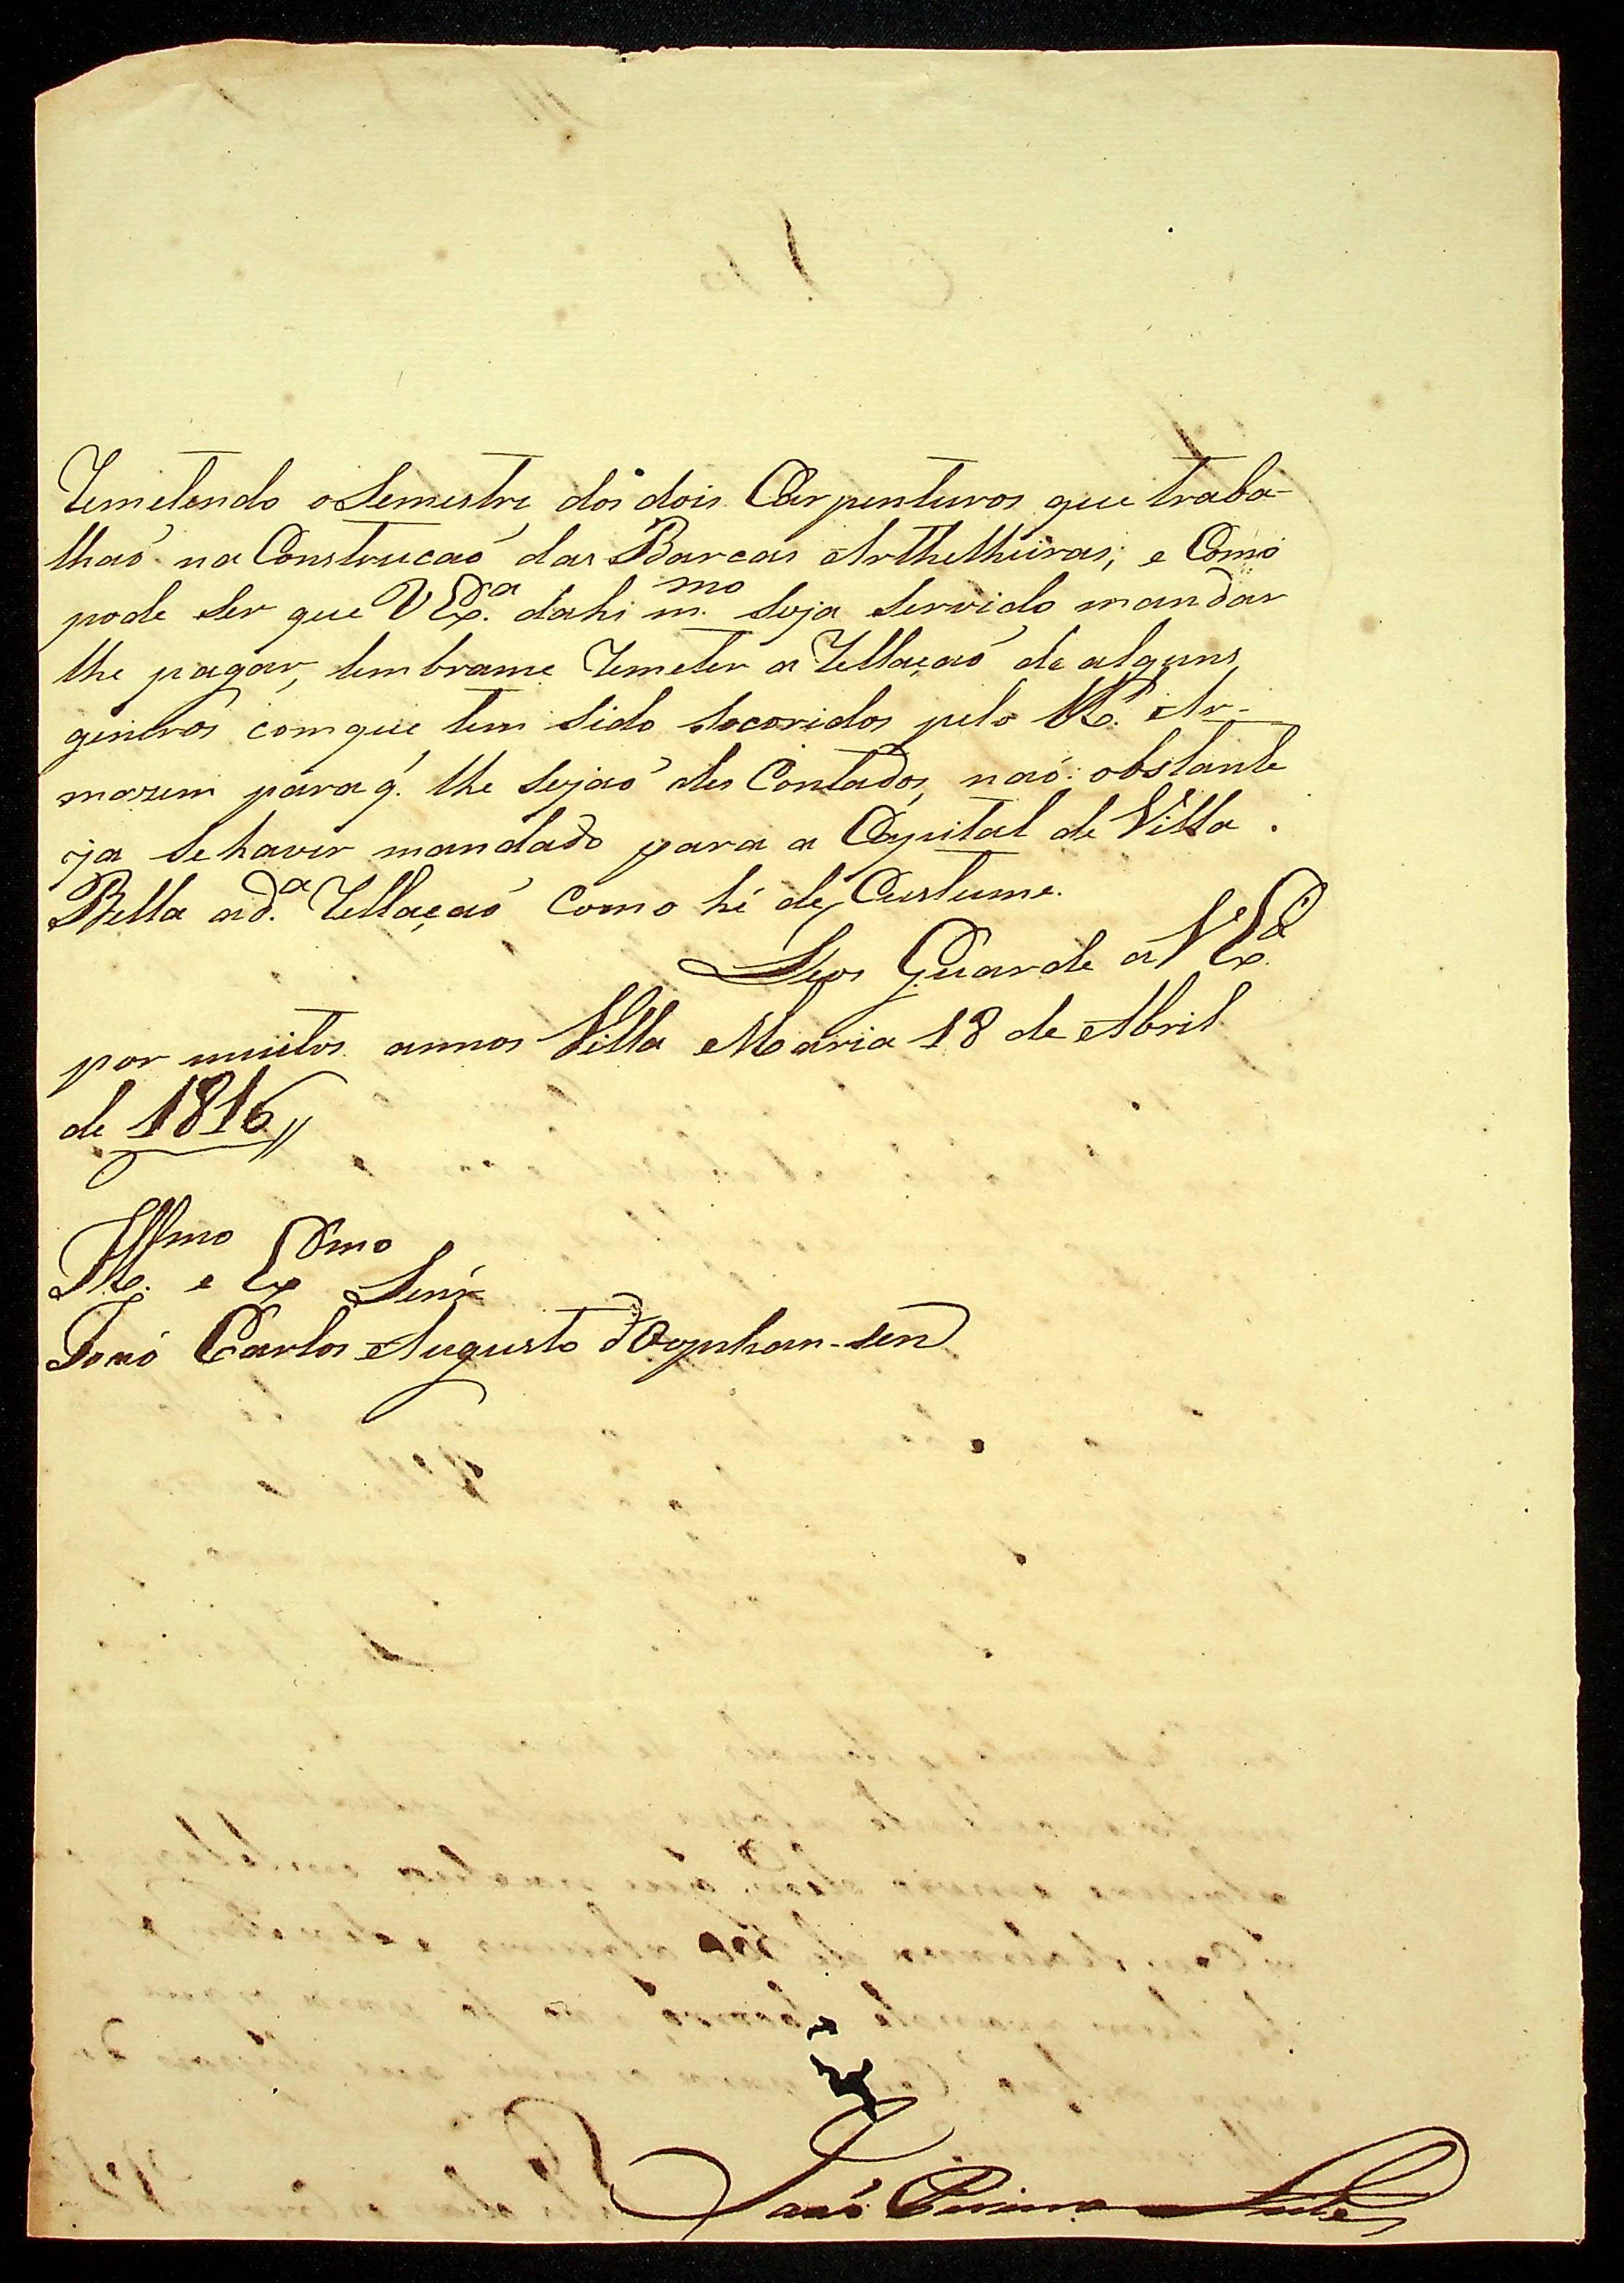 Remetendo o Semestre dos dois Carpenteiros que traba-
lhaó na Construcaó das Barcas Arthelheiras; e Como
pode ser que V Ex.ª dahi m.mo seja servido mandar
lhe pagar, lembrame Remeter a Rellaçaó de alguns
generos com que tem sido socoridos pelo R. Ar-
mazem para q. lhe sejaó des Contados, naó obstante
ja se haver mandado para a Capital de Villa
Bella a d.ª Rellaçaó como hé de Custume.
Deos Guarde a V Ex.ª
por muitos annos Villa Maria 18 de Abril
de 1816
Ill.mo e Ex.mo Senr
Joaó Carlos Augusto d'Oeynhausen
Joaó Leite